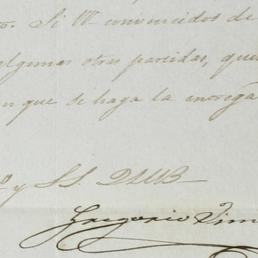 Si VV convencidos de
algunas otras partidas, que
en que se haga la entrega
y SS. QSMB
Gregorio Xim